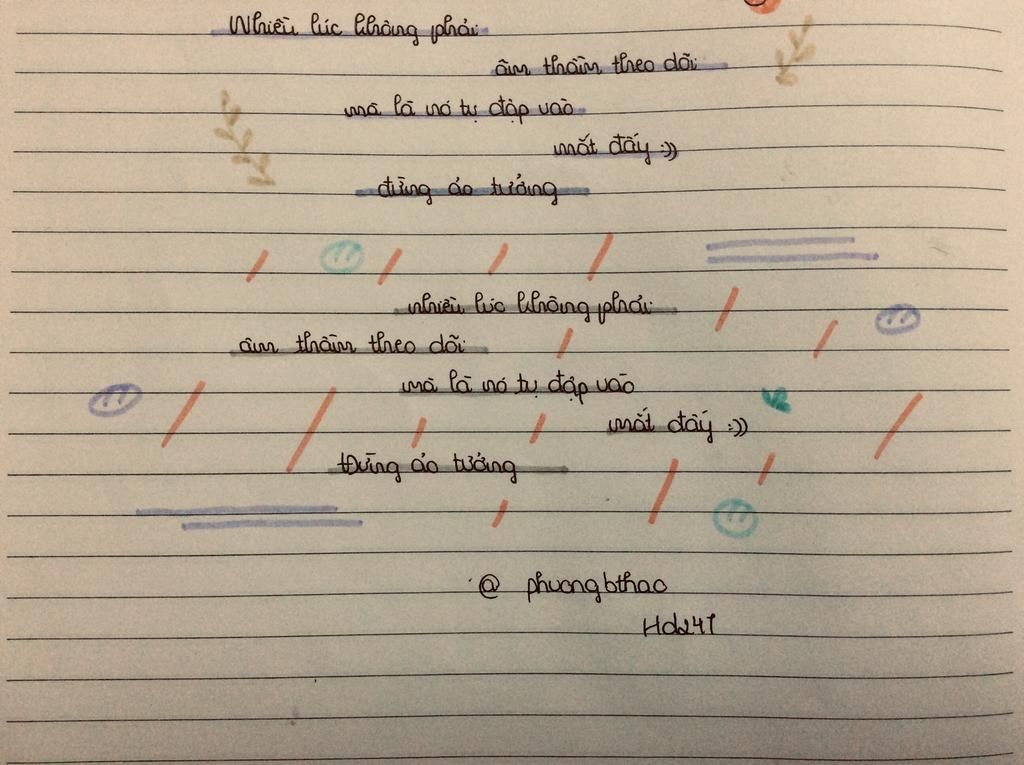 Nhiều lúc không phải
âm thầm theo dõi
mà là nó tự đập vào
mắt đấy :))
đừng ảo tưởng
nhiều lúc không phải
âm thầm theo dõi
mà là nó tự đập vào
mắt đấy :))
Đừng ảo tưởng
@ phuongbthao
Hd247